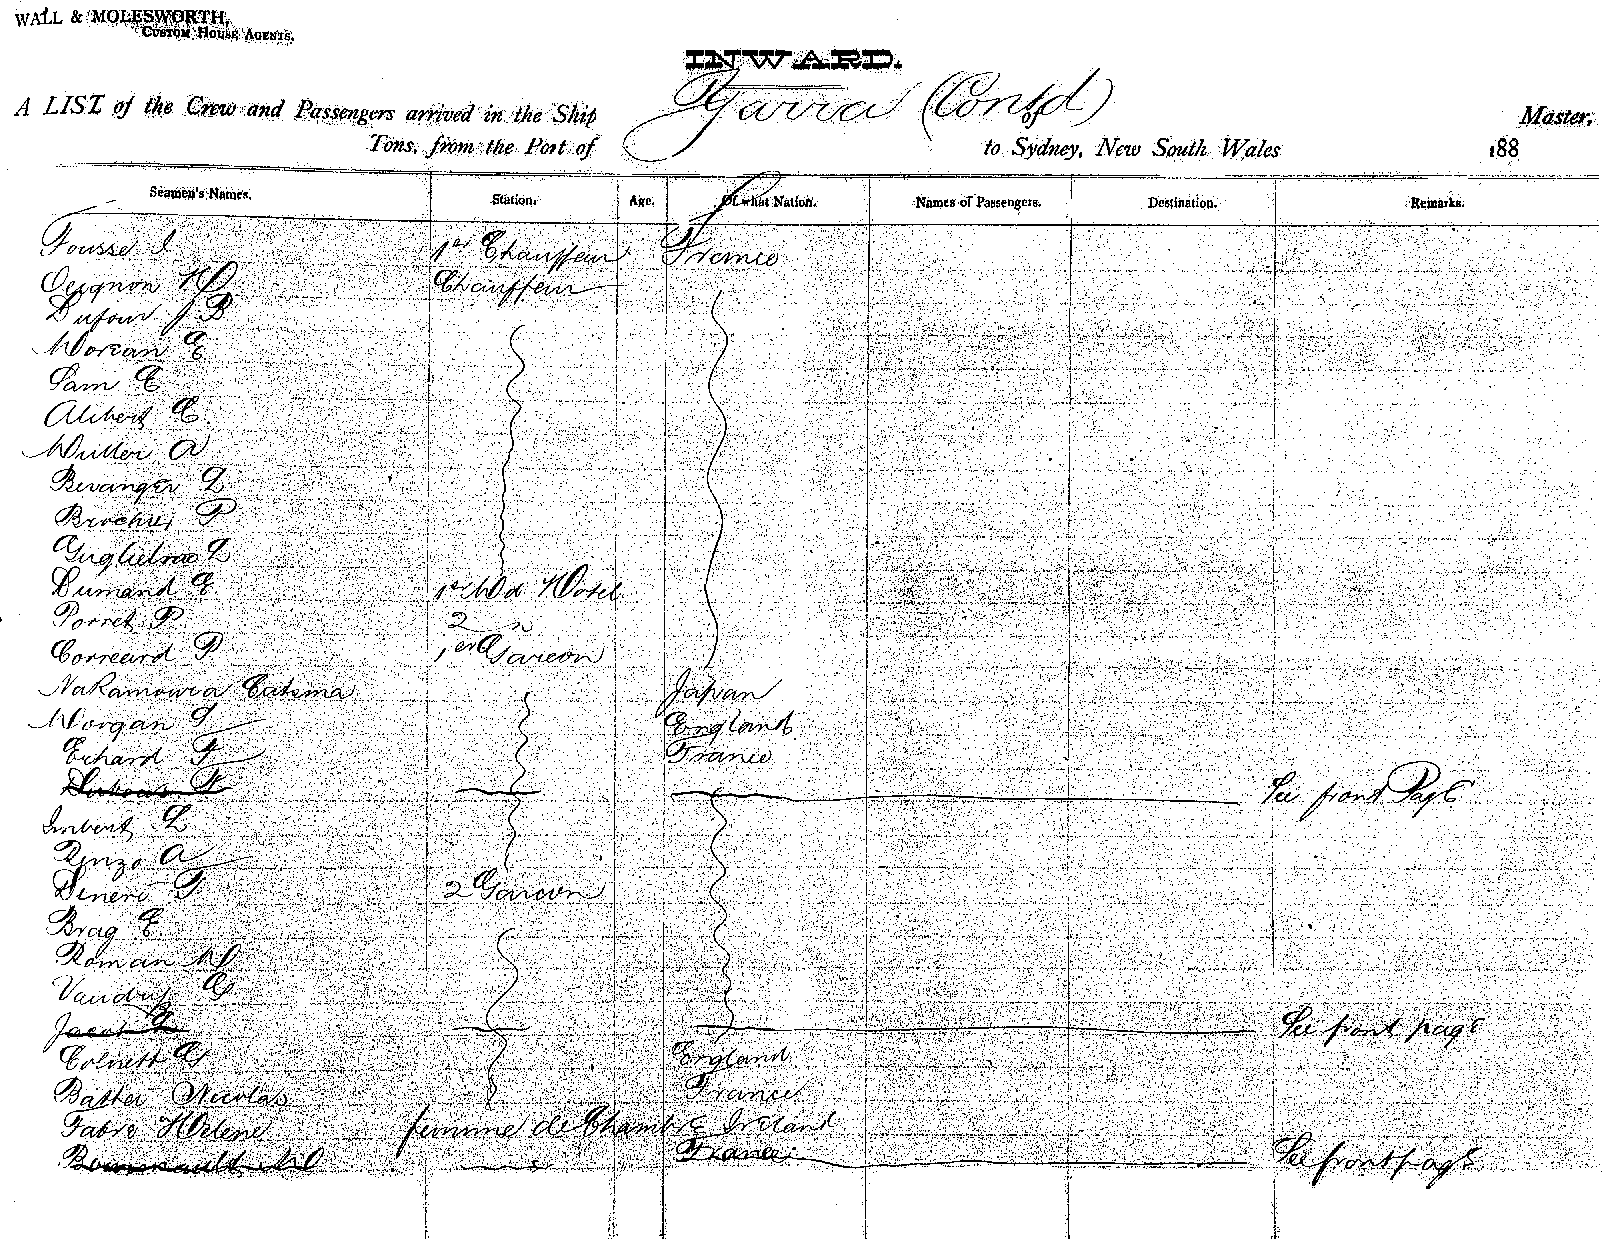 WALL & MOLESWORTH,
CUSTOM HOUSE AGENTS.
INWARD.
A LIST of the Crew and Passengers arrived in the Ship Yarra (Contd) of Master,
Tons, from the Port of to Sydney, New South Wales 188
Seamen's Names. Station. Age. Of what Nation. Names of Passengers. Destination. Remarks.
Fousse J 1er Chauffeur France
Chauffeur
Dufour J B
Morean E
Sam E
Alibert E
Muller A
Beranger L
Brochie P
Guglielme L
Dumand E 1er Md Hotel
Porret P 2 "
Correard P 1er Garcon
Nakamoura Catsma Japan
Morgan J England
Erhard F France
F See front Page
Imbert L
Renzo A
Dinero F 2 Garcon
Brag E
Roman M
G
Jacob L See front page
Colnett G England
Batker Nicolas France
Fabre Helene femme de Chambre Ireland
M France See front page